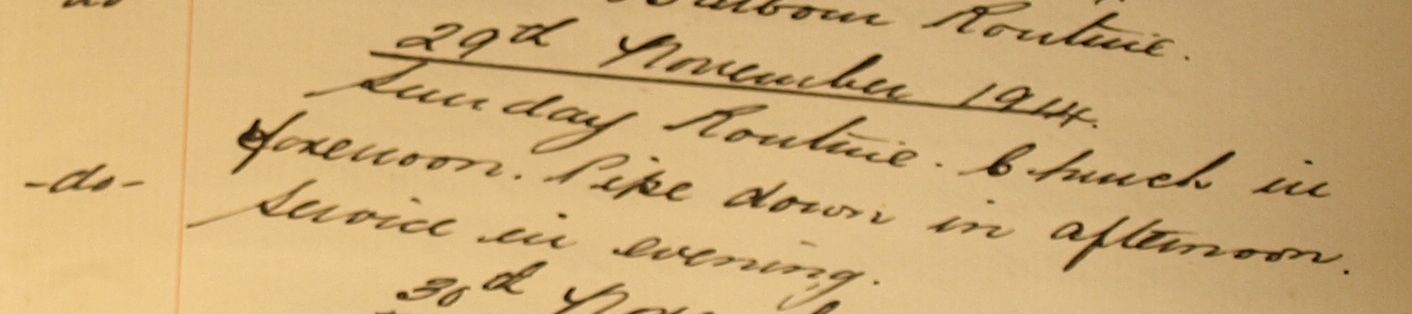 Routine.
29th November 1914.
Sunday Routine. Church in
forenoon. Pipe down in afternoon.
-do- Service in evening.
30th